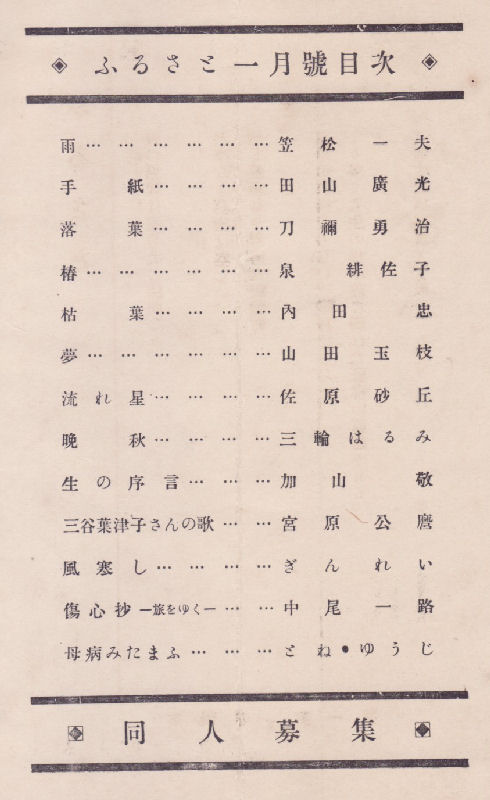 ふるさと一月號目次
雨…………………笠松一夫
手紙……………田山廣光
落葉……………刀禰勇治
椿…………………泉緋佐子
枯葉……………內田忠
夢…………………山田玉枝
流れ星……………佐原砂丘
晚秋……………三輪はるみ
生の序言………加山敬
三谷葉津子さんの歌……宮原公麿
風寒し…………ぎんれい
傷心抄―旅をゆく―……中尾一路
母病みたまふ………とね・ゆうじ
同人募集